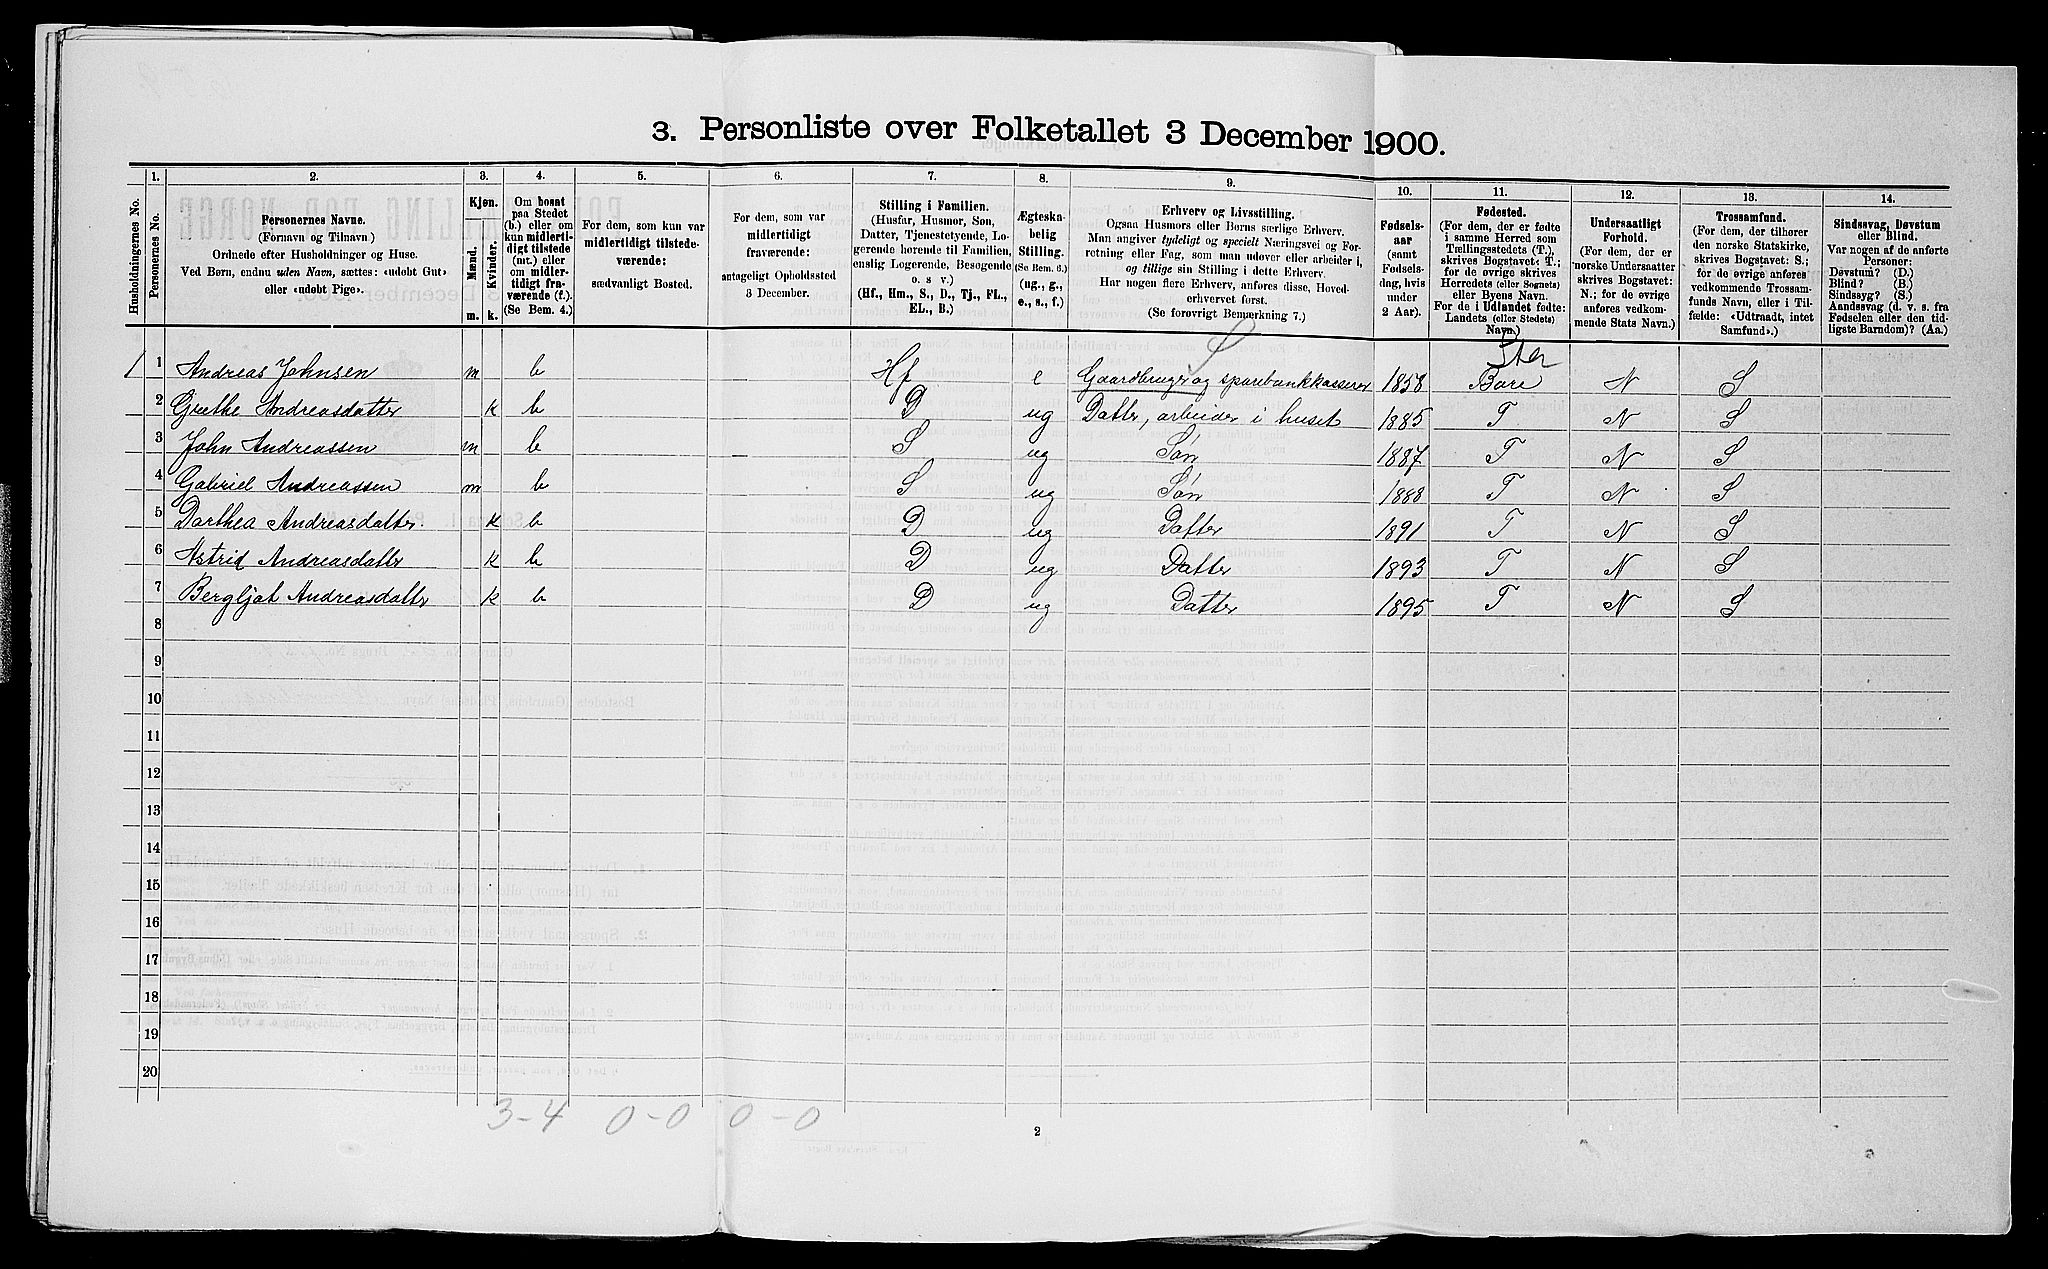 3. Personliste over Folketallet 3 December 1900.
1. 2. 3. 4. 5. 6. 7. 8. 9. 10. 11. 12. 13. 14.
Husholdningernes No.
Personernes No.
Personernes Navne.
(Fornavn og Tilnavn)
Ordnede efter Husholdninger og Huse.
Ved Børn, endnu uden Navn, sættes: «udøbt Gut»
eller «udøbt Pige».
Kjøn.
Mænd.
Kvinder.
m. k.
Om bosat
paa Stedet
(b.) eller om
kun midlerti-
digt tilstede
(mt.) eller
om midler-
tidigt fra-
værende (f.).
(Se Bem. 4.)
For dem, som kun var
midlertidigt tilstede-
værende:
sædvanligt Bosted.
For dem, som var
midlertidigt
fraværende:
antageligt Opholdssted
3 December.
Stilling i Familien.
(Husfar, Husmor, Søn,
Datter, Tjenestetyende, Lo-
gerende hørende til Familien,
enslig Logerende, Besøgende
o. s. v.)
(Hf., Hm., S., D., Tj., FL.,
EL., B.)
Ægteska-
belig
Stilling.
(Se Bem. 6.)
(ug., g.,
e., s., f.)
Erhverv og Livsstilling.
Ogsaa Husmors eller Børns særlige Erhverv.
Man angiver tydeligt og specielt Næringsvei og For-
retning eller Fag, som man udøver eller arbeider i,
og tillige sin Stilling i dette Erhverv.
Har nogen flere Erhverv, anføres disse, Hoved-
erhvervet først.
(Se forøvrigt Bemerkning 7.)
Fødsels-
aar
(samt
Fødsels-
dag, hvis
under
2 Aar).
Fødested.
(For dem, der er fødte
i samme Herred som
Tællingsstedets (T.),
skrives Bogstavet: T.;
for de øvrige skrives
Herredets (eller Sognets)
eller Byens Navn.
For de i Udlandet fødte:
Landets (eller Stedets)
Navn.)
Undersaatligt
Forhold.
(For dem, der er
norske Undersaatter
skrives Bogstavet:
N.; for de øvrige
anføres vedkom-
mende Stats Navn.)
Trossamfund.
(For dem, der tilhører
den norske Statskirke,
skrives Bogstavet: S.;
for de øvrige anføres
vedkommende Trossam-
funds Navn, eller i Til-
fælde: «Udtraadt, intet
Samfund».)
Sindssvag, Døvstum
eller Blind.
Var nogen af de anførte
Personer:
Døvstum? (D.)
Blind? (B.)
Sindssyg? (S.)
Aandssvag (d. v. s. fra
Fødselen eller den tid-
ligste Barndom)? (Aa.)
1 1 Andreas Johnsen m b Hf e Gaardbruger og sparebankkasserer 1858 Bore N S
2 Grethe Andreasdatter k b D ug Datter, arbeider i huset 1885 T N S
3 John Andreassen m b S ug Søn 1887 T N S
4 Gabriel Andreassen m b S ug Søn 1888 T N S
5 Dorthea Andreasdatter. k b D ug Datter 1891 T N S
6 Astrid Andreasdatter k b D ug Datter 1893 T N S
7 Bergljot Andreasdatter k b D ug Datter 1895 T N S
8
9
10
11
12
13
14
15
16
17
18
19
20
3-4 0-0 0-0
2